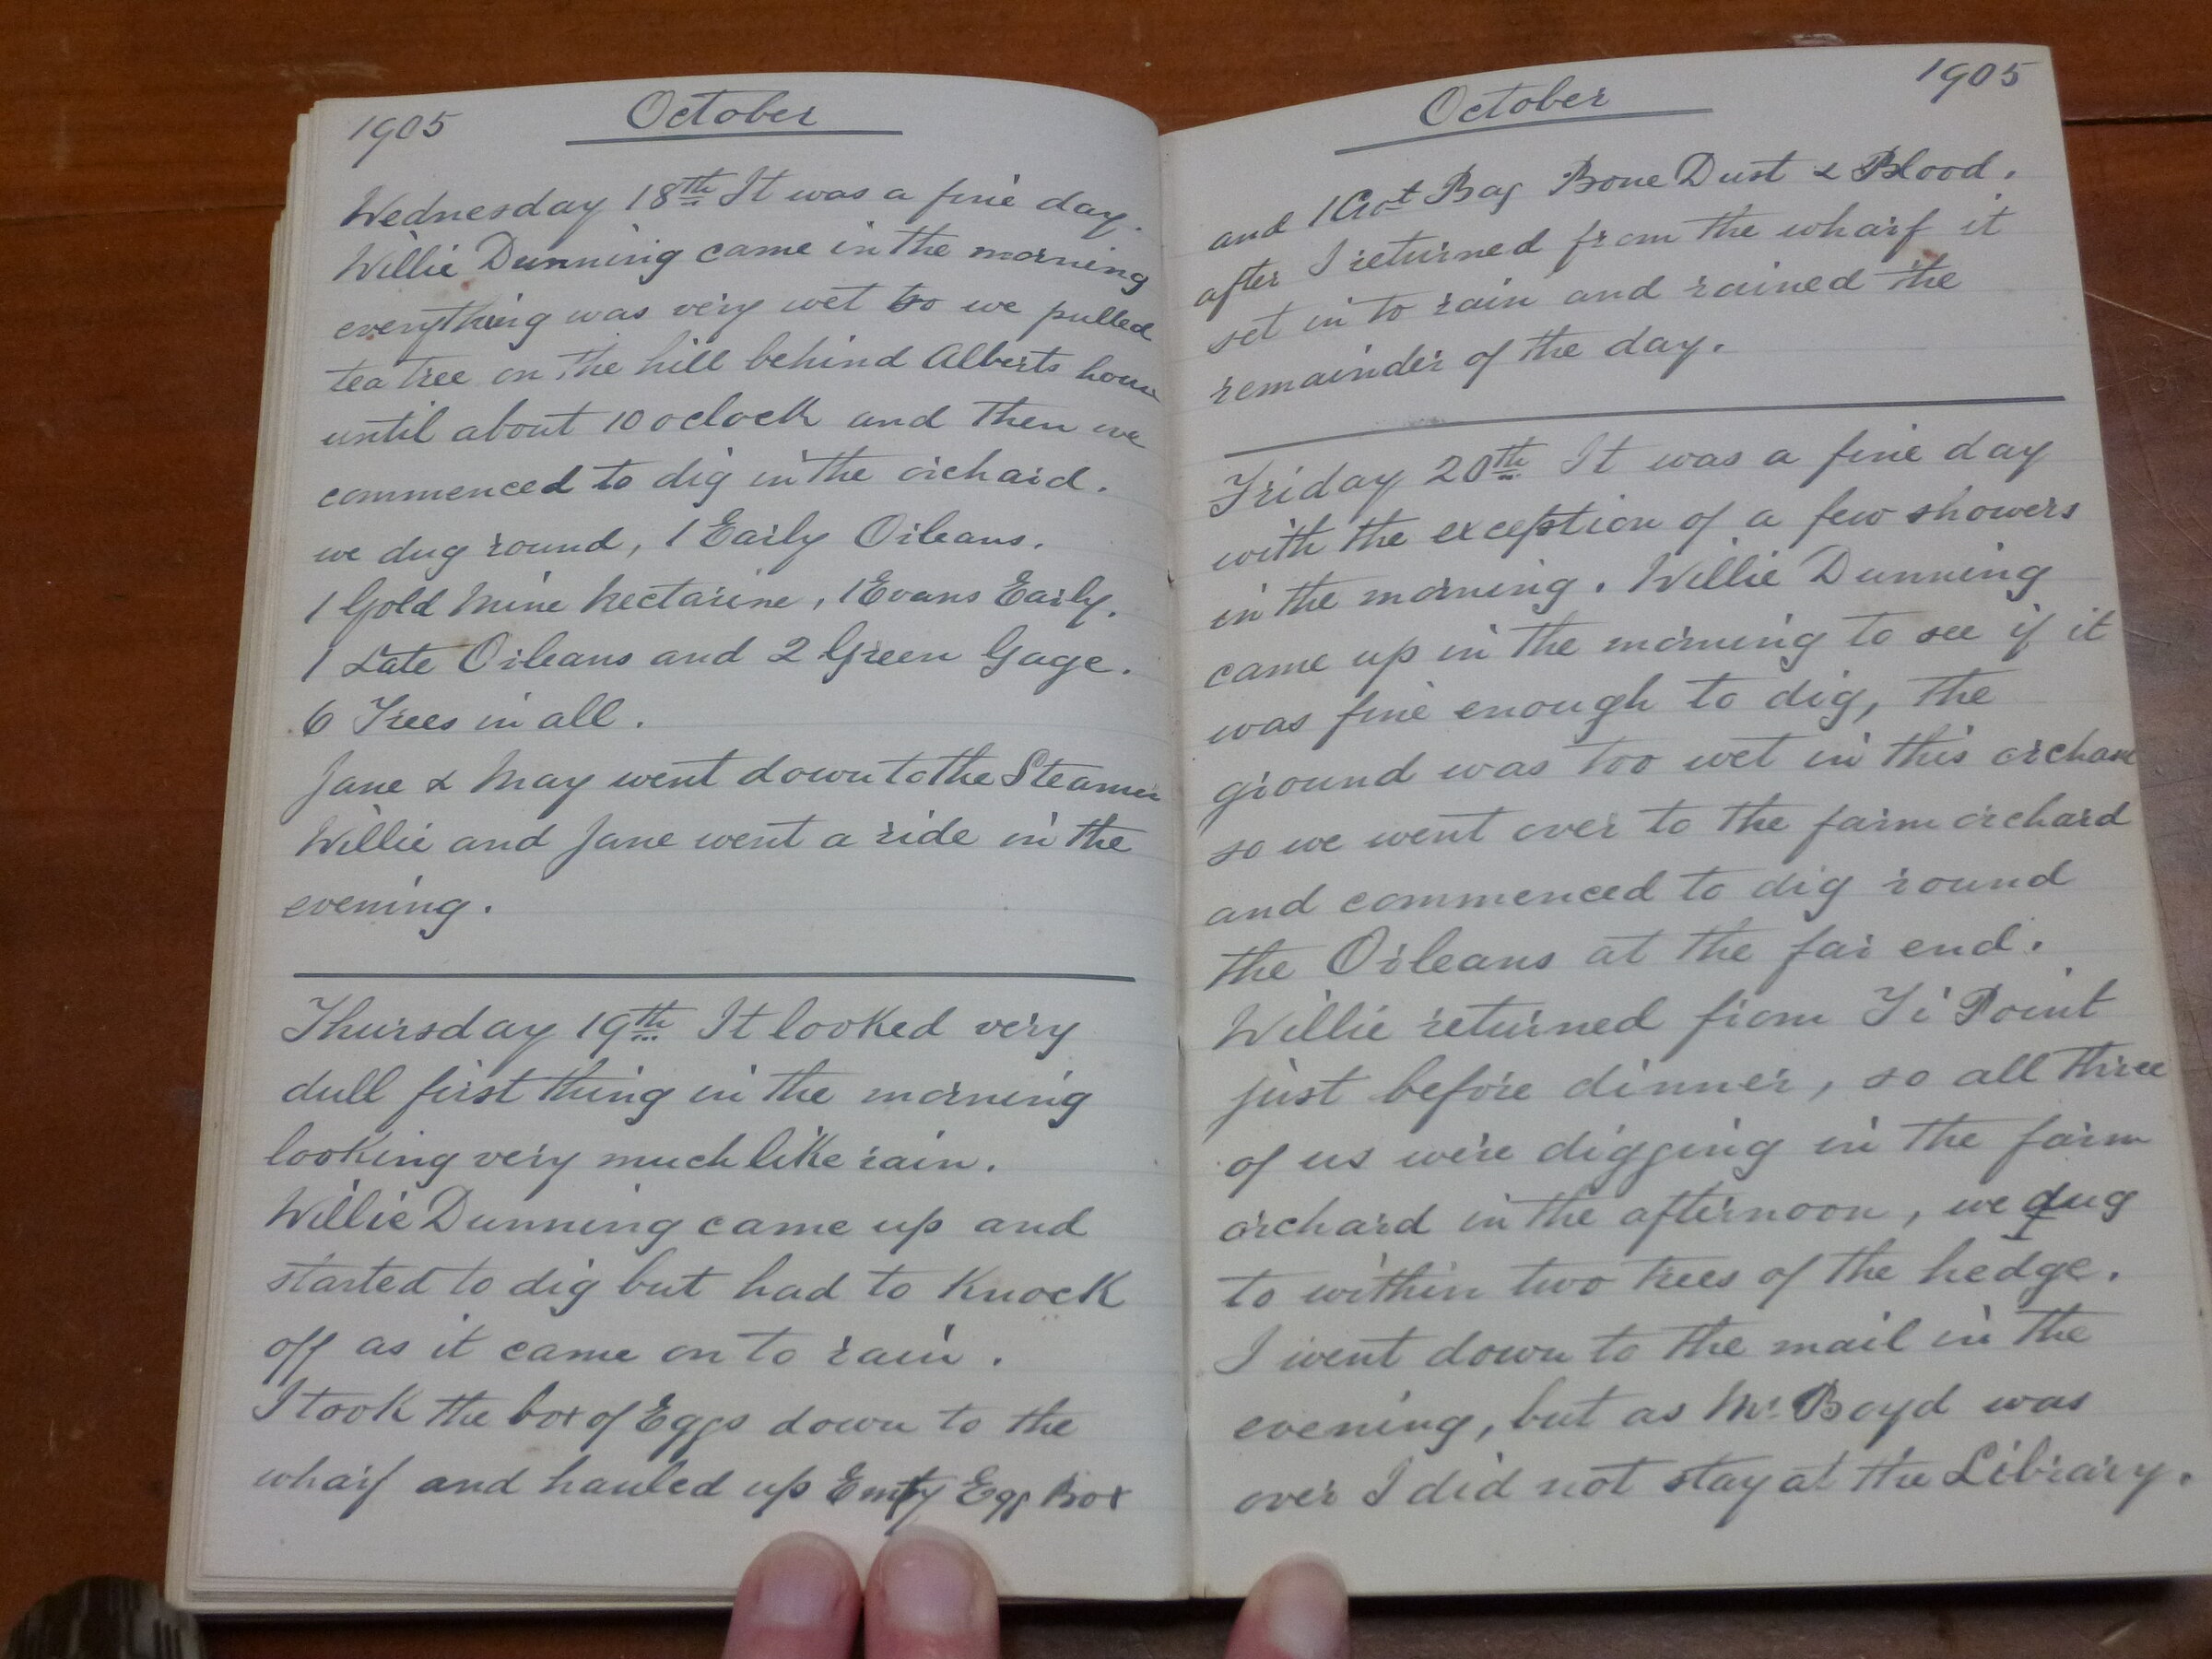 1905 October
Wednesday 18th It was a fine day.
Willie Dunning came in the morning
everything was very wet so we pulled
tea tree on the hill behind Alberts house
until about 10 oclock and then we
commenced to dig in the orchard.
we dug round, 1 Early Orleans.
1 Gold Mine Nectarine, 1 Evans Early.
1 Late Orleans and 2 Green Gage.
6 Trees in all.
Jane & May went down to the Steamer
Willie and Jane went a ride in the
evening.
Thursday 19th It looked very
dull first thing in the morning
looking very much like rain.
Willie Dunning came up and
started to dig but had to knock
off as it came on to rain.
I took the box of Eggs down to the
wharf and hauled up Emty Egg Box
October 1905
and 1 Bag Bone Dust & Blood.
after I returned from the wharf it
set in to rain and rained the
remainder of the day.
Friday 20th It was a fine day
with the exception of a few showers
in the morning. Willie Dunning
came up in the morning to see if it
was fine enough to dig, the
ground was too wet in this orchard
so we went over to the farm orchard
and commenced to dig round
the Orleans at the far end.
Willie returned from Ti Point
just before dinner, so all three
of us were digging in the farm
orchard in the afternoon, we dug
to within two trees of the hedge.
I went down to the mail in the
evening, but as Mr Boyd was
over I did not stay at the Library.